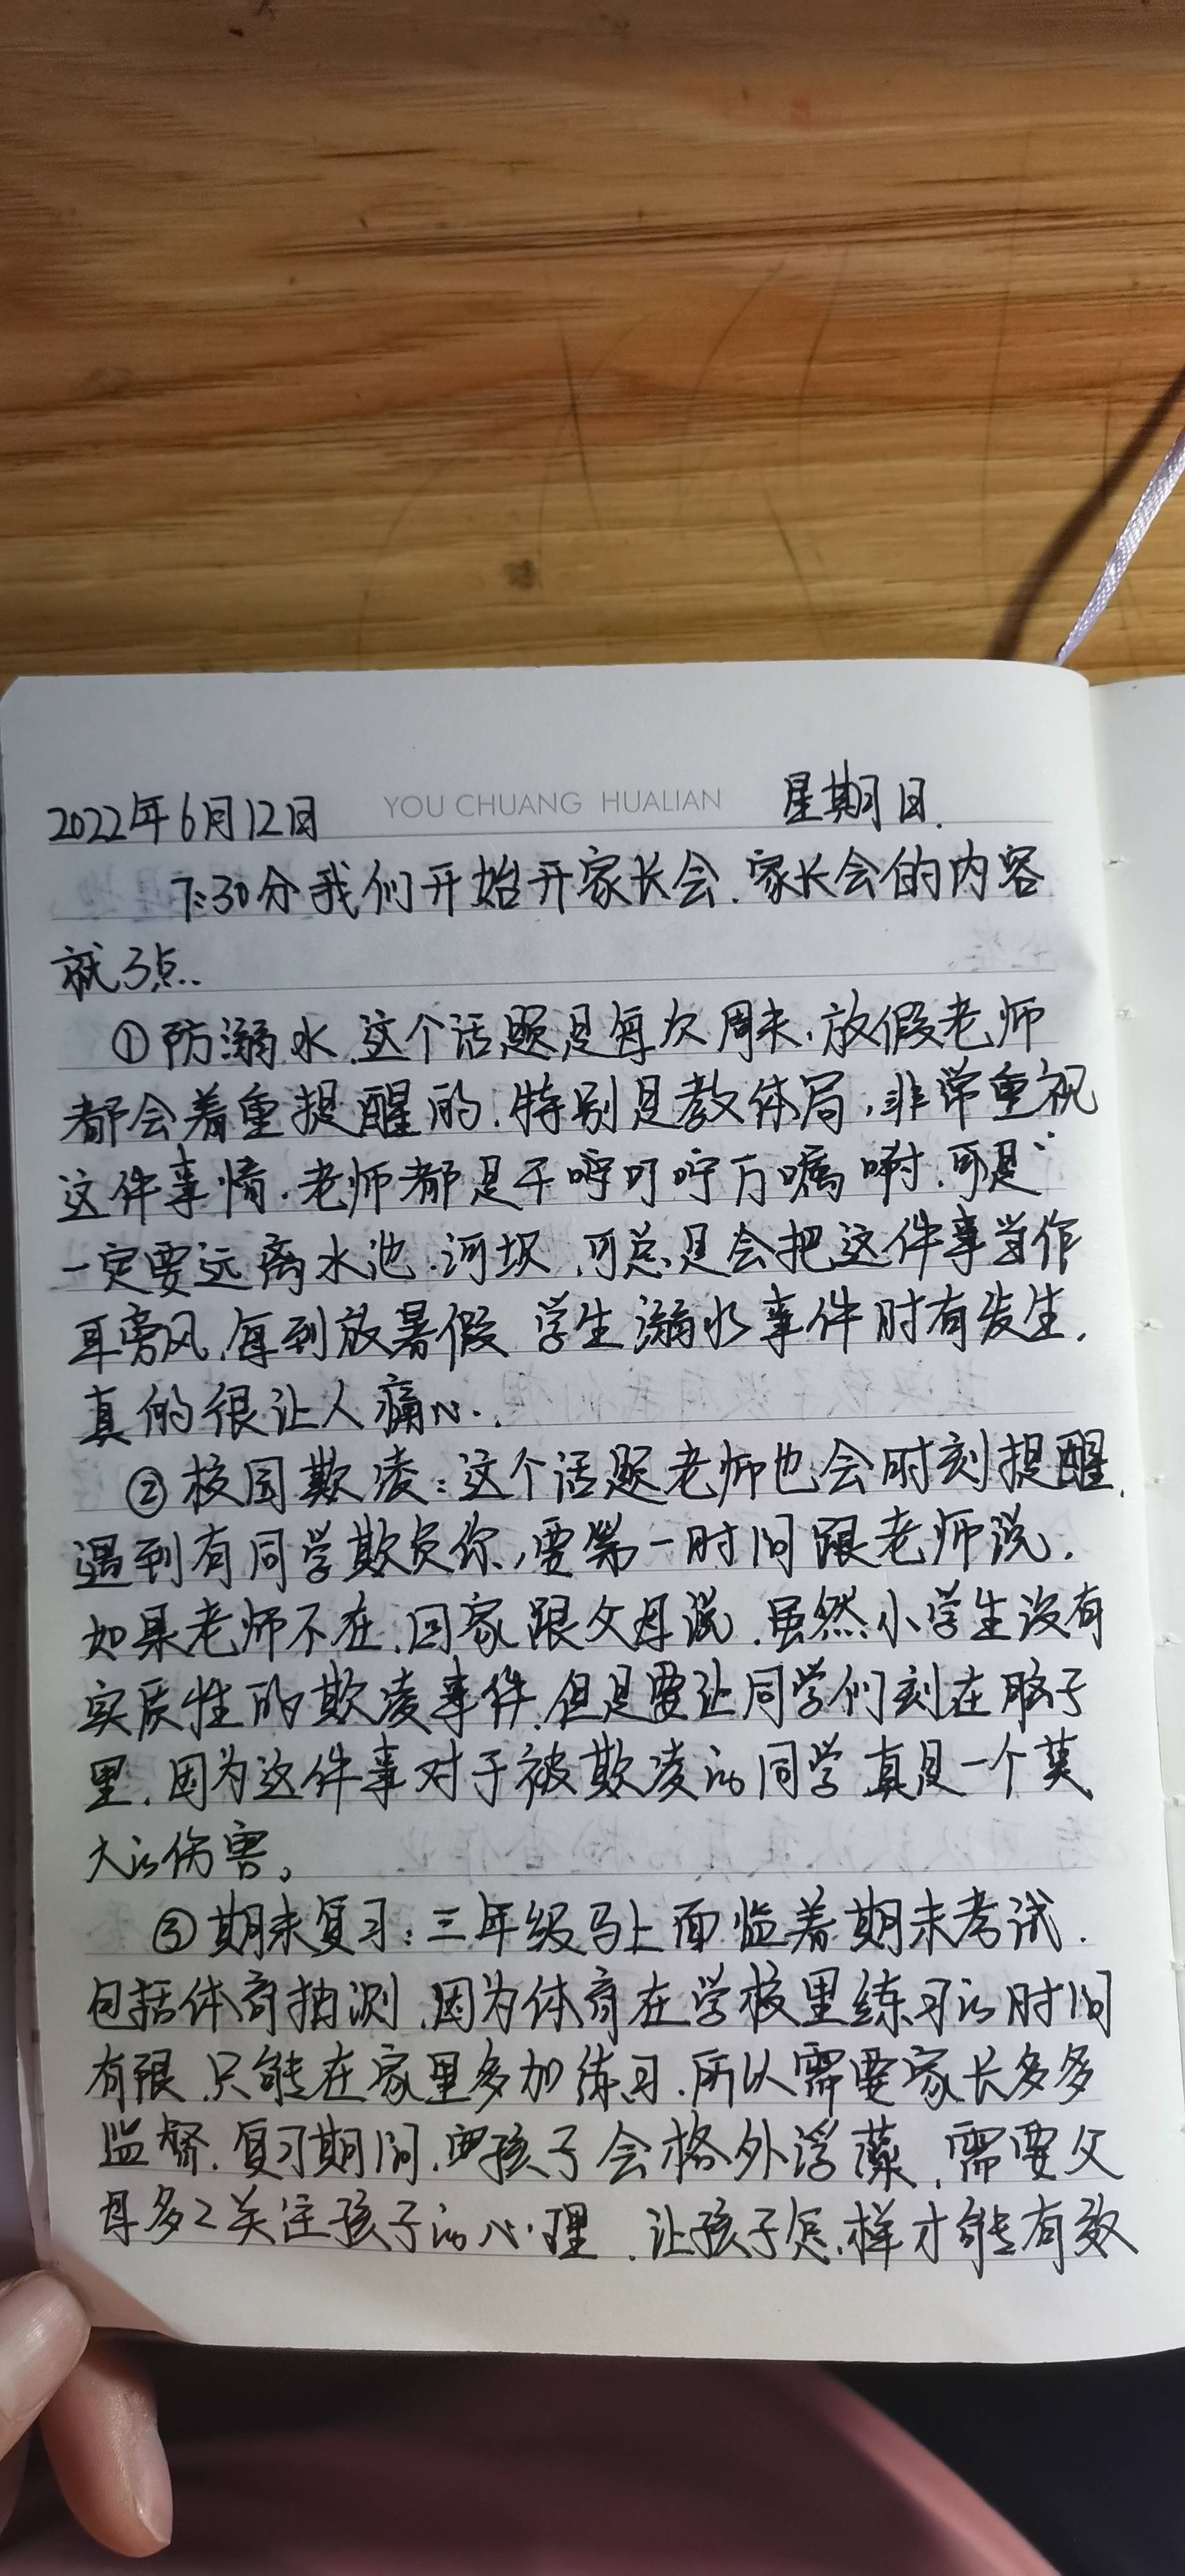 2022年6月12日 YOU CHUANG HUALIAN 星期日.
7:30分我们开始开家长会.家长会的内容
就3点..
①防溺水.这个话题是每次周末,放假老师
都会着重提醒的.特别是教体局,非常重视
这件事情.老师都是千叮咛万嘱啊.可是
一定要远离水池.河坝,可总是会把这件事当作
耳旁风.每到放暑假 学生溺水事件时有发生.
真的很让人痛心..
②校园欺凌:这个话题老师也会时刻提醒.
遇到有同学欺负你,要第一时间跟老师说.
如果老师不在.回家跟父母说.虽然小学生没有
实质性的欺凌事件.但是要让同学们刻在脑子
里.因为这件事对于被欺凌的同学真是一个莫
大的伤害。
③期末复习:三年级马上面临着期末考试.
包括体育抽测.因为体育在学校里练习的时间
有限.只能在家里多加练习.所以需要家长多多
监督.复习期间,孩子会格外浮藻,需要父
母多2关注孩子的心理.让孩子怎样才能有效